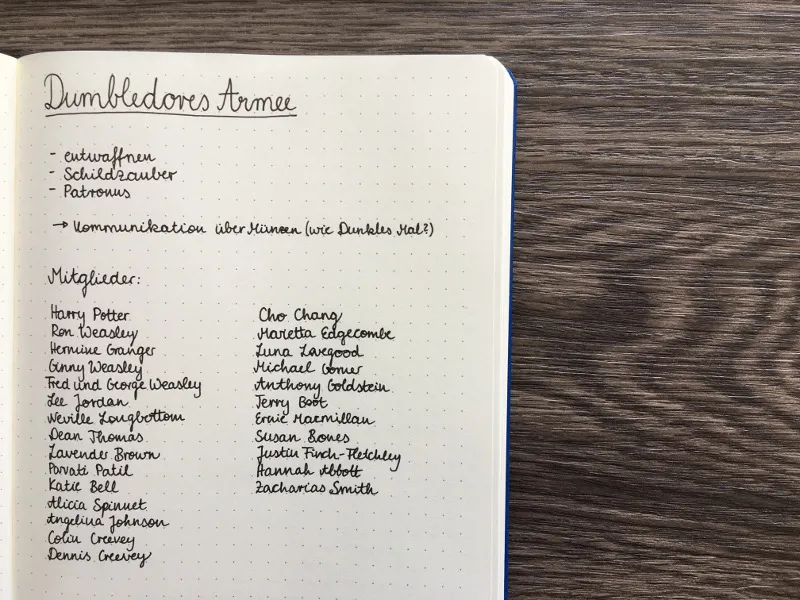 Dumbledores Armee
- entwaffnen
- Schildzauber
- Patronus
→ Kommunikation über Münzen (wie Dunkles Mal?)
Mitglieder:
Harry Potter
Ron Weasley
Hermine Granger
Ginny Weasley
Fred und George Weasley
Lee Jordan
Neville Longbottom
Dean Thomas
Lavender Brown
Parvati Patil
Katie Bell
Alicia Spinnet
Angelina Johnson
Colin Creevey
Dennis Creevey
Cho Chang
Marietta Edgecombe
Luna Lovegood
Michael Corner
Anthony Goldstein
Terry Boot
Ernie Macmillan
Susan Bones
Justin Finch-Fletchley
Hannah Abbott
Zacharias Smith